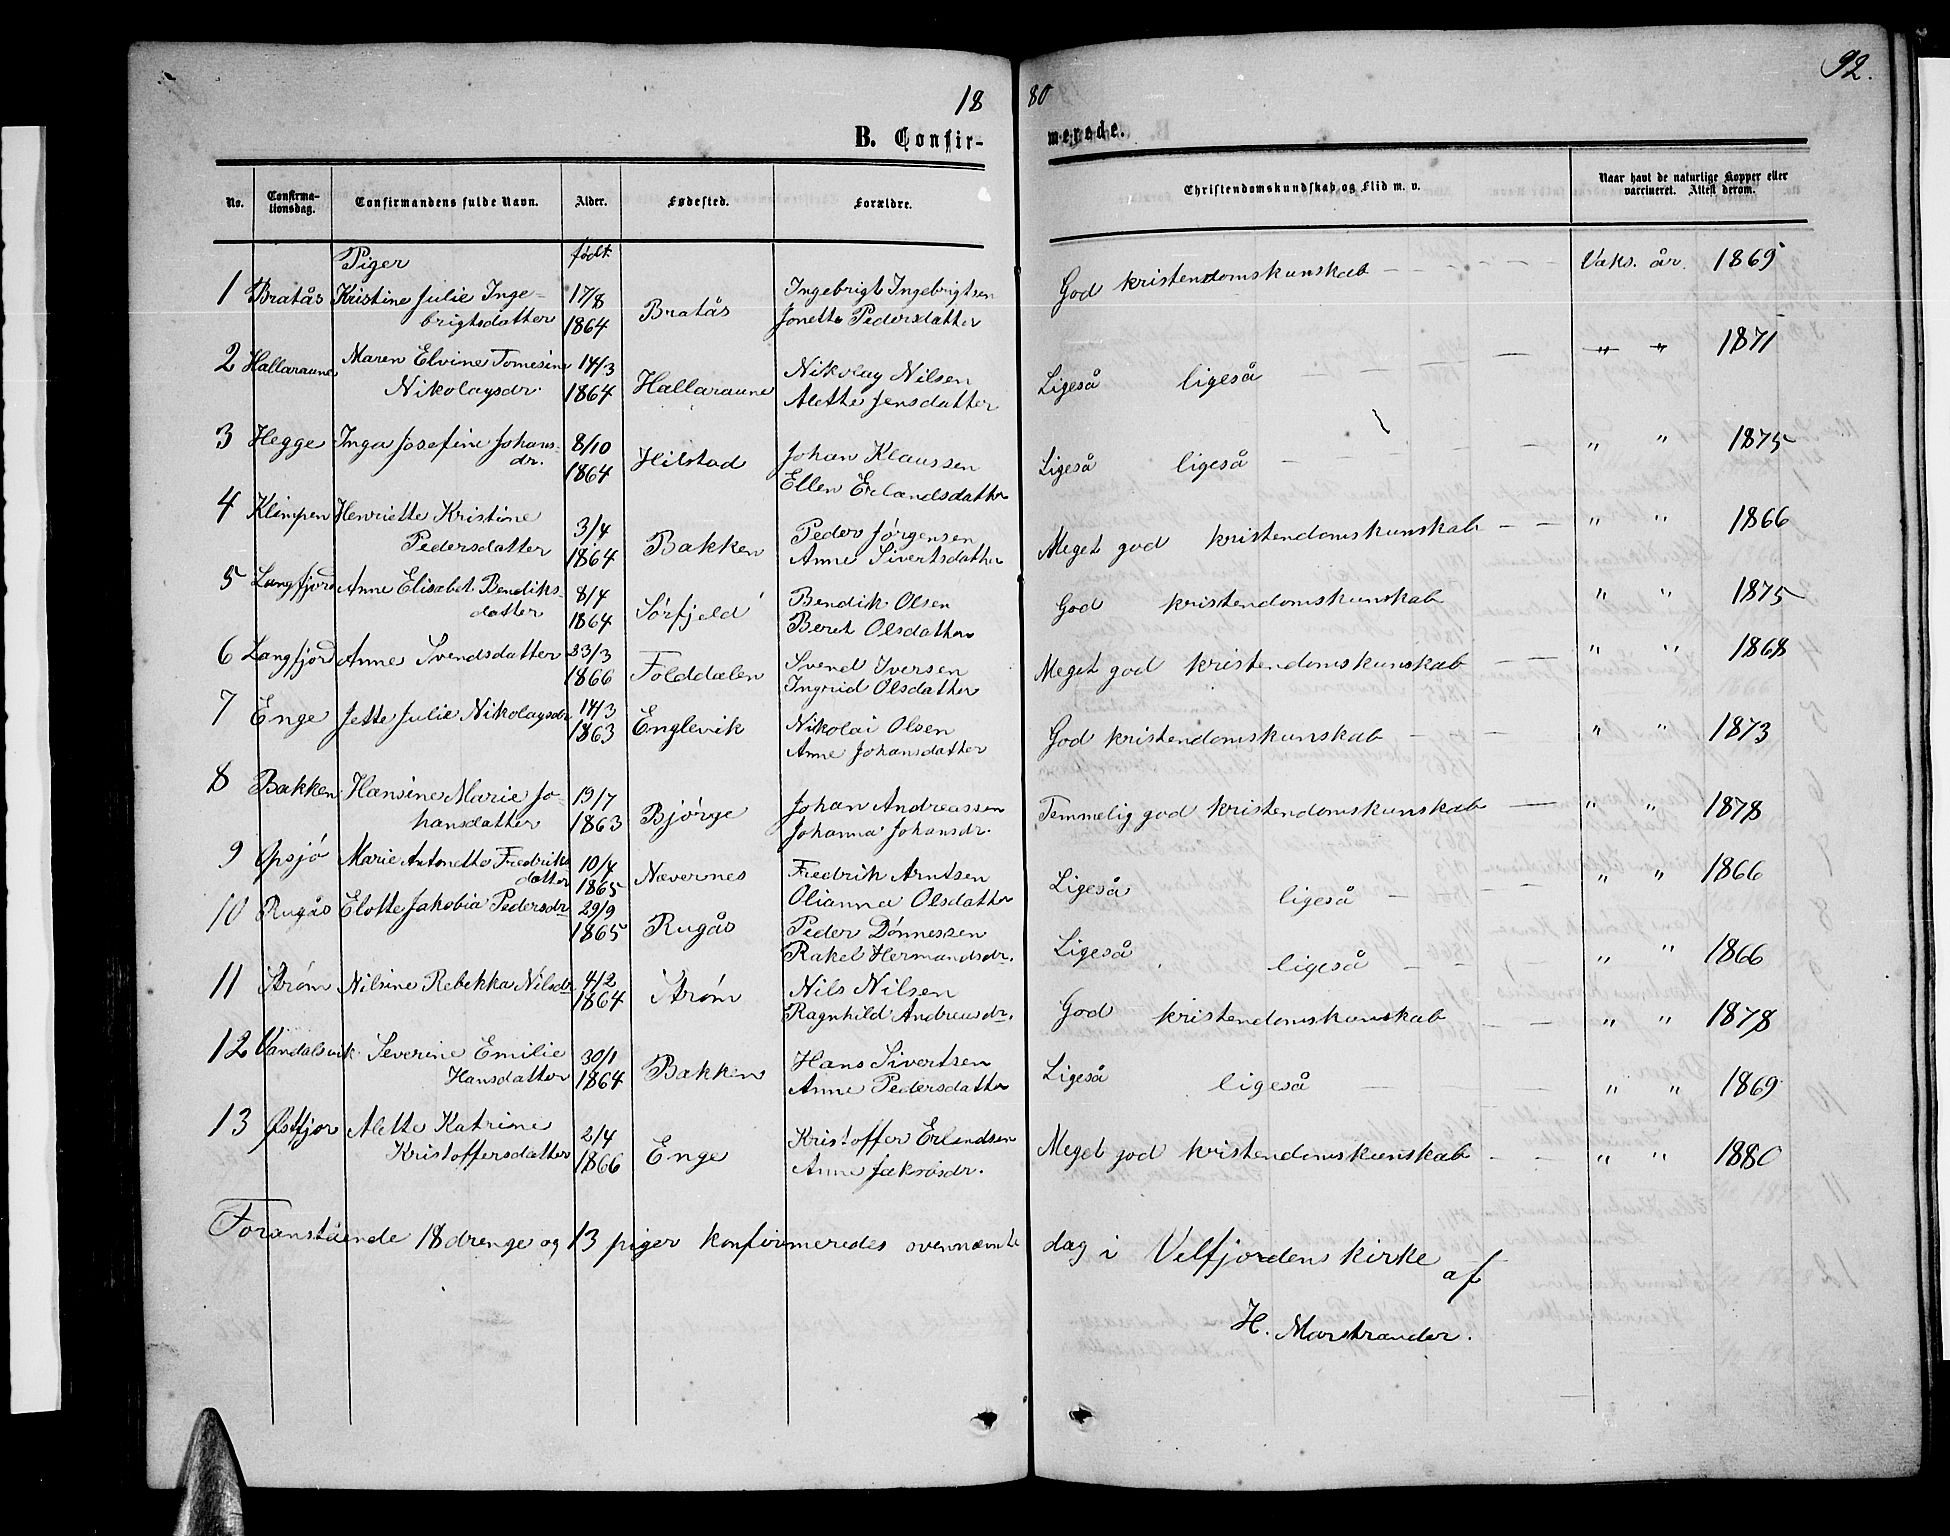 92.
18 80
B. Confirmerede.
No. Confirmationsdag. Confirmandens fulde Navn. Alder. Fødested. Forældre. Christendomskundskab og Flid m. v. Naar havt de naturlige Kopper eller vaccineret. Attest derom.
Piger født
1 Bratås Kristine Julie Ingebrigtsdatter 17/8 1864 Bratås Ingebrigt Ingebrigtsen Jonette Pedersdatter God kristendomskunskab — — — Vaks. år. 1869
2 Hallaraune Maren Elvine Tomesine Nikolaysdr. 14/3 1864 Hallaraune Nikolay Nilsen Alette Jensdatter Ligeså ligeså — — — " " 1871
3 Hegge Inga Josefine Johansdr. 8/10 1864 Hilstad Johan Klaussen Ellen Erlandsdatter Ligeså ligeså — — — " " 1875
4 Klimpen Henriette Kristine Pedersdatter 3/4 1864 Bakken Peder Jørgensen Anne Sivertsdatter Meget god kristendomskunskab — — " " 1866
5 Langfjord Anne Elisabet Bendiksdatter 8/4 1864 Sørfjeld Bendik Olsen Beret Olsdatter God kristendomskunskab " " 1875
6 Langfjord Anne Svendsdatter 23/3 1866 Folddalen Svend Iversen Ingrid Olsdatter Meget god kristendomskunskab — — " " 1868
7 Enge Jette Julie Nikolaysdr 14/3 1863 Englevik Nikolai Olsen Anne Johansdatter God kristendomskunskab — — — " " 1873
8 Bakken Hansine Marie Johansdatter 19/7 1863 Bjørge Johan Andreassen Johanna Johansdr. Temmelig god kristendomskunskab — " " 1878
9 Opsjø Marie Antonette Fredriksdatter 10/4 1865 Nævernes Fredrik Arntsen Olianna Olsdatter Ligeså ligeså — — — " " 1866
10 Rugås Elotte Jakobia Pedersdr 29/9 1865 Rugås Peder Dønnessen Rakel Hermandsdr. Ligeså ligeså — — — " " 1866
11 Strøm Nilsine Rebekka Nilsdr 4/2 1864 Strøm Nils Nilsen Ragnhild Andreasdr. God kristendomskunskab — — " " 1878
12 Vandalsvik Severine Emilie Hansdatter 30/1 1864 Bakken Hans Sivertsen Anne Pedersdatter Ligeså ligeså — — " " 1869
13 Østfjor Alette Katrine Kristoffersdatter 2/4 1866 Enge Kristoffer Erlandsen Anne Meget god kristendomskunskab — — " " 1880
Foranstående 18 drenge og 13 piger konfirmeredes ovennævnte dag i Velfjordens kirke af
H. Marstrander.